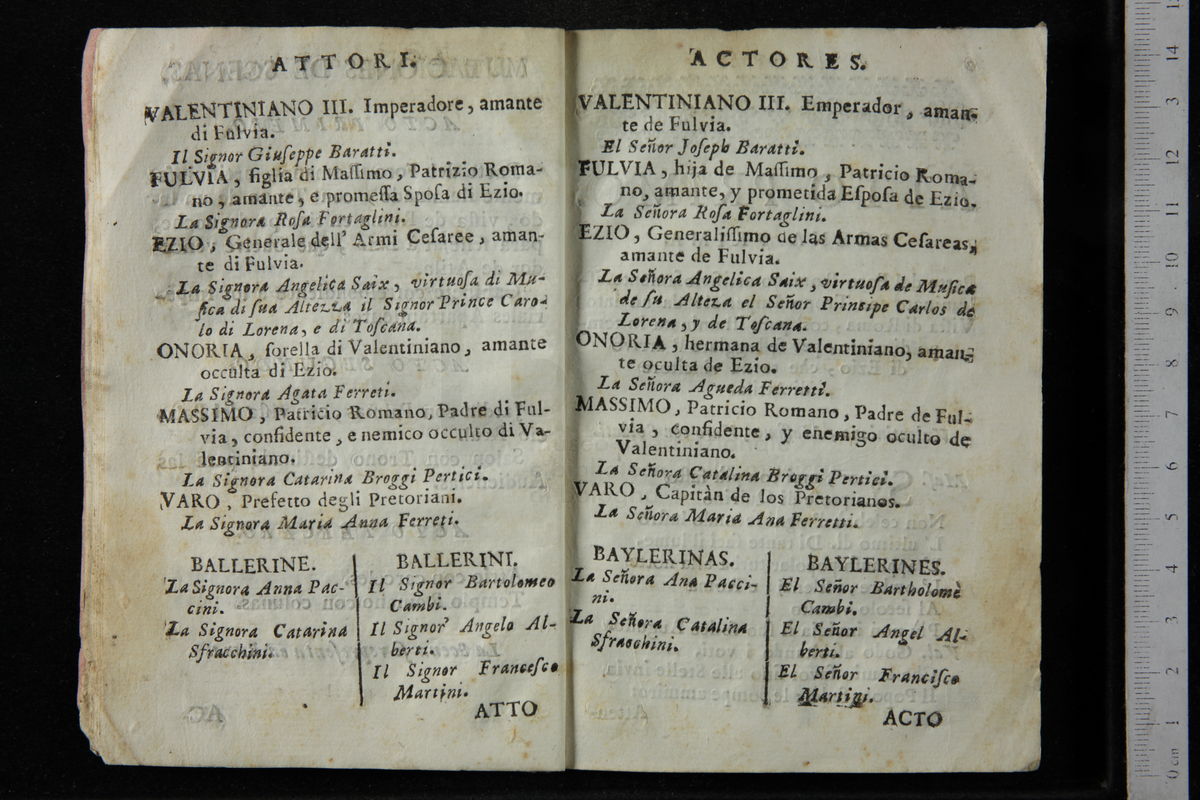 ATTORI.
VALENTINIANO III. Imperadore, amante
di Fulvia.
Il Signor Giuſeppe Baratti.
FULVIA, figlia di Maſſimo, Patrizio Roma-
no, amante, e promeſſa Spoſa di Ezio.
La Signora Roſa Fortaglini.
EZIO, Generale dell' Armi Ceſaree, aman-
te di Fulvia.
La Signora Angelica Saix, virtuoſa di Mu-
ſica di ſua Altezza il Signor Prince Caro-
lo di Lorena, e di Toſcana.
ONORIA, ſorella di Valentiniano, amante
occulta di Ezio.
La Signora Agata Ferreti.
MASSIMO, Patricio Romano, Padre di Ful-
via, confidente, e nemico occulto di Va-
lentiniano.
La Signora Catarina Broggi Pertici.
VARO, Prefetto degli Pretoriani.
La Signora Maria Anna Ferreti.
BALLERINE.
La Signora Anna Pac-
cini.
La Signora Catarina
Sfracchini.
BALLERINI.
Il Signor Bartolomeo
Cambi.
Il Signor Angelo Al-
berti.
Il Signor Franceſco
Martini.
ATTO
ACTORES.
VALENTINIANO III. Emperador, aman-
te de Fulvia.
El Señor Joſeph Baratti.
FULVIA, hija de Maſſimo, Patricio Roma-
no, amante, y prometida Eſpoſa de Ezio.
La Señora Roſa Fortaglini.
EZIO, Generaliſſimo de las Armas Ceſareas,
amante de Fulvia.
La Señora Angelica Saix, virtuoſa de Muſica
de ſu Alteza el Señor Principe Carlos de
Lorena, y de Toſcana.
ONORIA, hermana de Valentiniano, aman-
te oculta de Ezio.
La Señora Agueda Ferretti.
MASSIMO, Patricio Romano, Padre de Ful-
via, confidente, y enemigo oculto de
Valentiniano.
La Señora Catalina Broggi Pertici.
VARO, Capitàn de los Pretorianos.
La Señora Maria Ana Ferretti.
BAYLERINAS.
La Señora Ana Pacci-
ni.
La Señora Catalina
Sfracchini.
BAYLERINES.
El Señor Bartholomè
Cambi.
El Señor Angel Al-
berti.
El Señor Franciſco
Martini.
ACTO